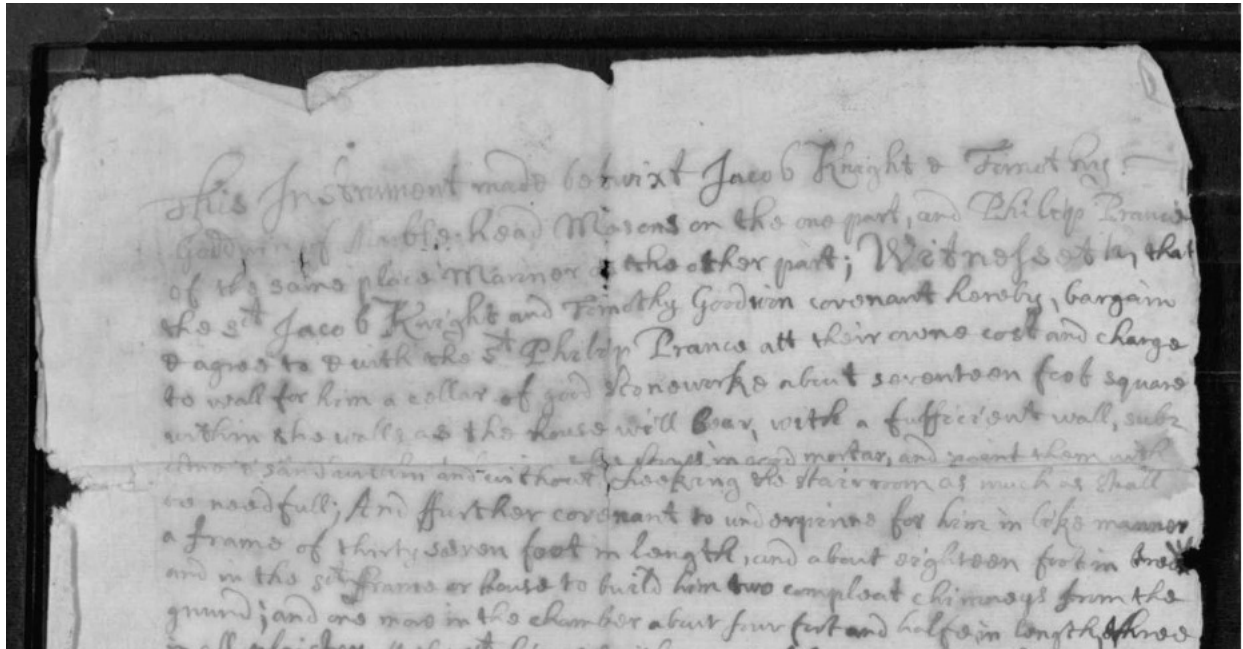 This Instrument made betwixt Jacob Knight & Timothy
Goddwin of Marblehead Masons on the one part, and Philip Prance
of the same place Marriner the other part; Witnesseth, that
the sd Jacob Knight and Timothy Goodwin covenant hereby, bargain
& agree to & with the sd Philip Prance att their owne cost and charge
to wall for him a cellar of good stoneworke about seventeen foot square
within the walls as the house will bear, with a sufficient wall,
in good mortar, and point them with
and without cheeking the stairroom as much as shall
be needfull; And ffurther covenant to underpinne for him in like manner
a frame of thirty seven foot in length, and about eighteen foot in
and in the sd frame or house to build him two compleat chimneys from the
grund; and one more in the chamber about four foot and halfe in length, three